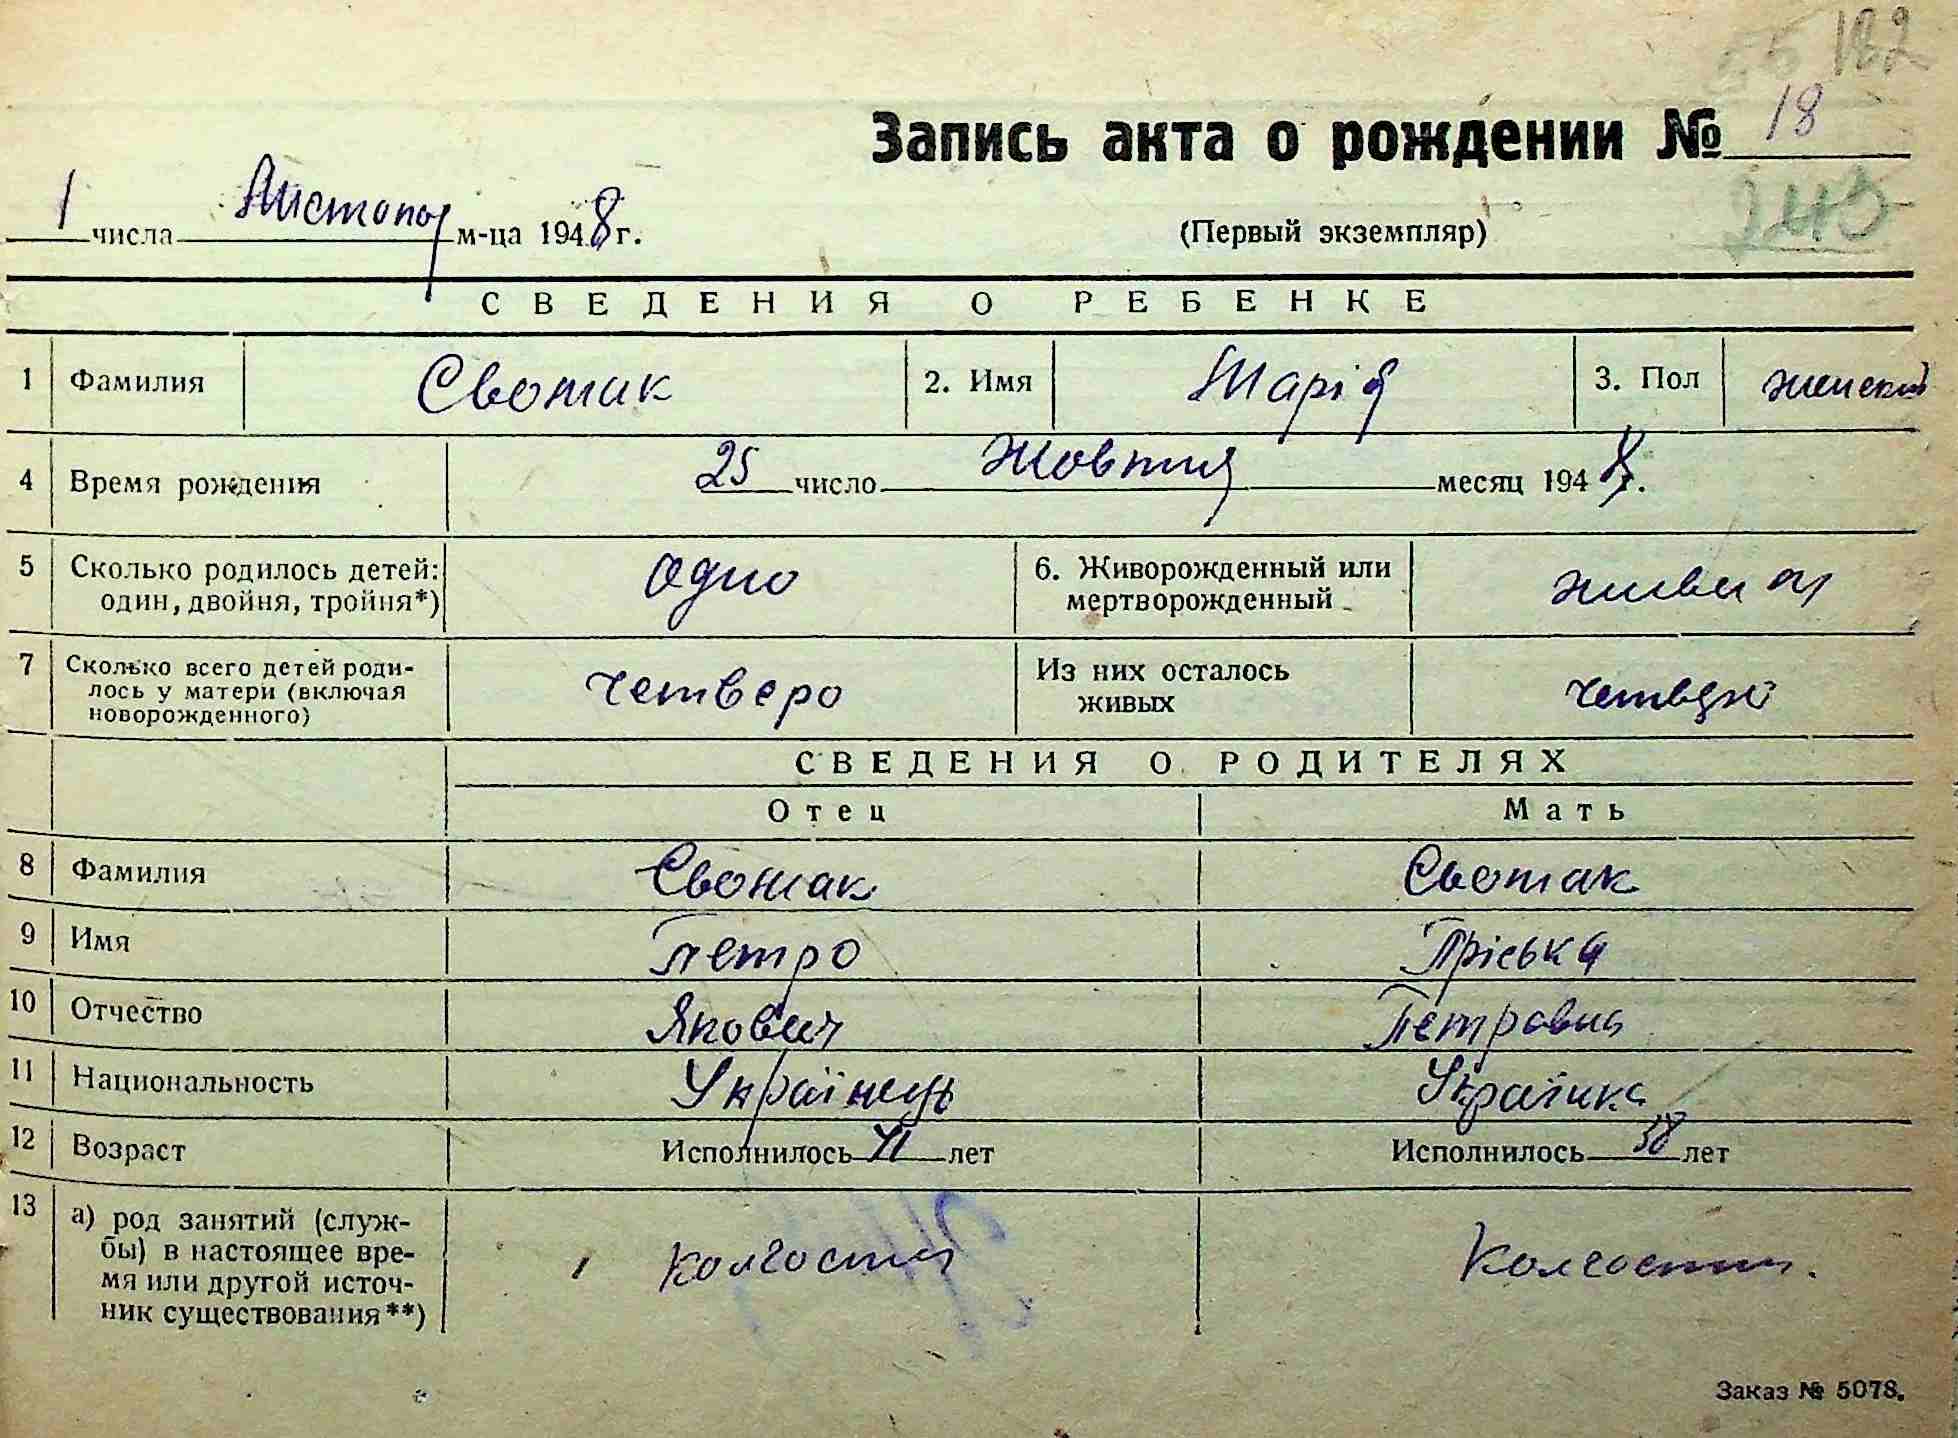 182
Запись акта о рождении № 18
1 числа Листопад м-ца 1948 г.
(Первый экземпляр)
243
СВЕДЕНИЯ О РЕБЕНКЕ
1 Фамилия Свотак 2. Имя Марія 3. Пол женский
4 Время рождения 25 число Жовтня месяц 1948 г.
5 Сколько родилось детей: один, двойня, тройня*) одно 6. Живорожденный или мертворожденный
7 Сколько всего детей родилось у матери (включая новорожденного) четверо Из них осталось живых четверо
СВЕДЕНИЯ О РОДИТЕЛЯХ
Отец Мать
8 Фамилия Свотак Свотак
9 Имя Петро Пріська
10 Отчество Якович Петровна
11 Национальность Українець Українка
12 Возраст Исполнилось 41 лет Исполнилось 38 лет
13 а) род занятий (служ-
бы) в настоящее вре-
мя или другой источ-
ник существования**) колгоспн Колгоспн.
Заказ № 5078.